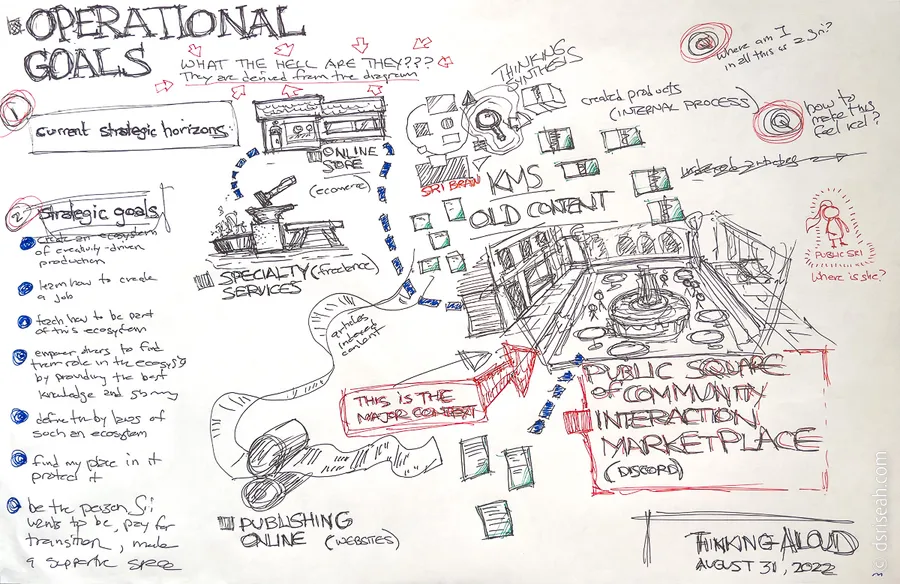 OPERATIONAL
GOALS
WHAT THE HELL ARE THEY???
They are derived from the diagram
1
current strategic horizons
2
strategic goals
create an ecosystem
of creativity-driven
production
learn how to create
a job
teach how to be part
of this ecosystem
empower others to find
their role in the ecosystem
by providing the best
knowledge and
define the by laws of
such an ecosystem
find my place in it
protect it
be the person Sri
wants to be, pay for
transition, make
a supportive space
ONLINE
STORE
(ecomerce)
SPECIALTY (freelance)
SERVICES
articles
interest
content
THIS IS THE
MAJOR CONTEXT
PUBLISHING
ONLINE (WEBSITES)
THINKING
SYNTHESIS
SRI BRAIN
KMS
OLD CONTENT
created products
(INTERNAL PROCESS)
where am I
in all this as Sri?
how to
make this
feel real?
PUBLIC SRI
where is she?
PUBLIC SQUARE
of COMMUNITY
INTERACTION
MARKETPLACE
(DISCORD)
THINKING ALOUD
AUGUST 31, 2022
© dsriseah.com